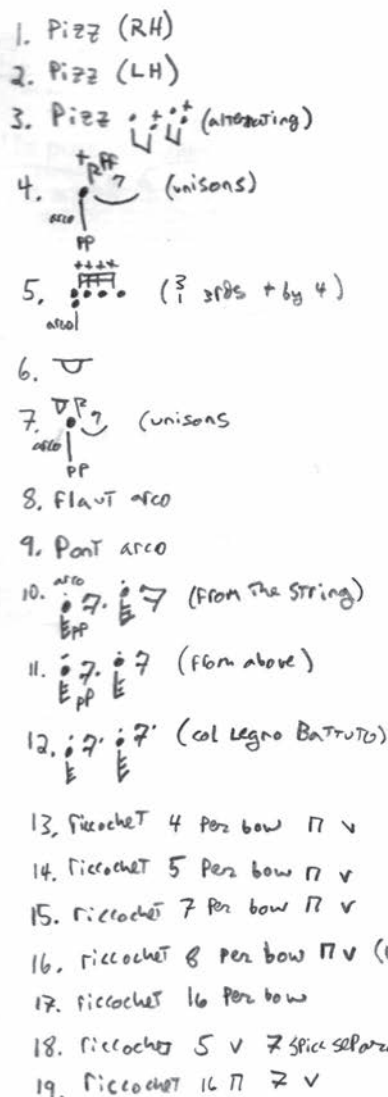 1. Pizz (RH)
2. Pizz (LH)
3. Pizz (alternating)
4. + ff (unisons)
arco
pp
5. ++++ (3 1 3rds + by 4)
arco
6.
7. (unisons
arco
pp
8. Flaut arco
9. Pont arco
10. arco (From The String)
pp
11. (from above)
pp
12. (col legno BaTTuTO)
13. riccocheT 4 Per bow П V
14. riccocheT 5 Per bow П V
15. riccocheT 7 Per bow П V
16. riccocheT 8 Per bow П V (
17. riccocheT 16 Per bow
18. riccocheT 5 V 7 spicc
19. riccocheT 16 П 7 V